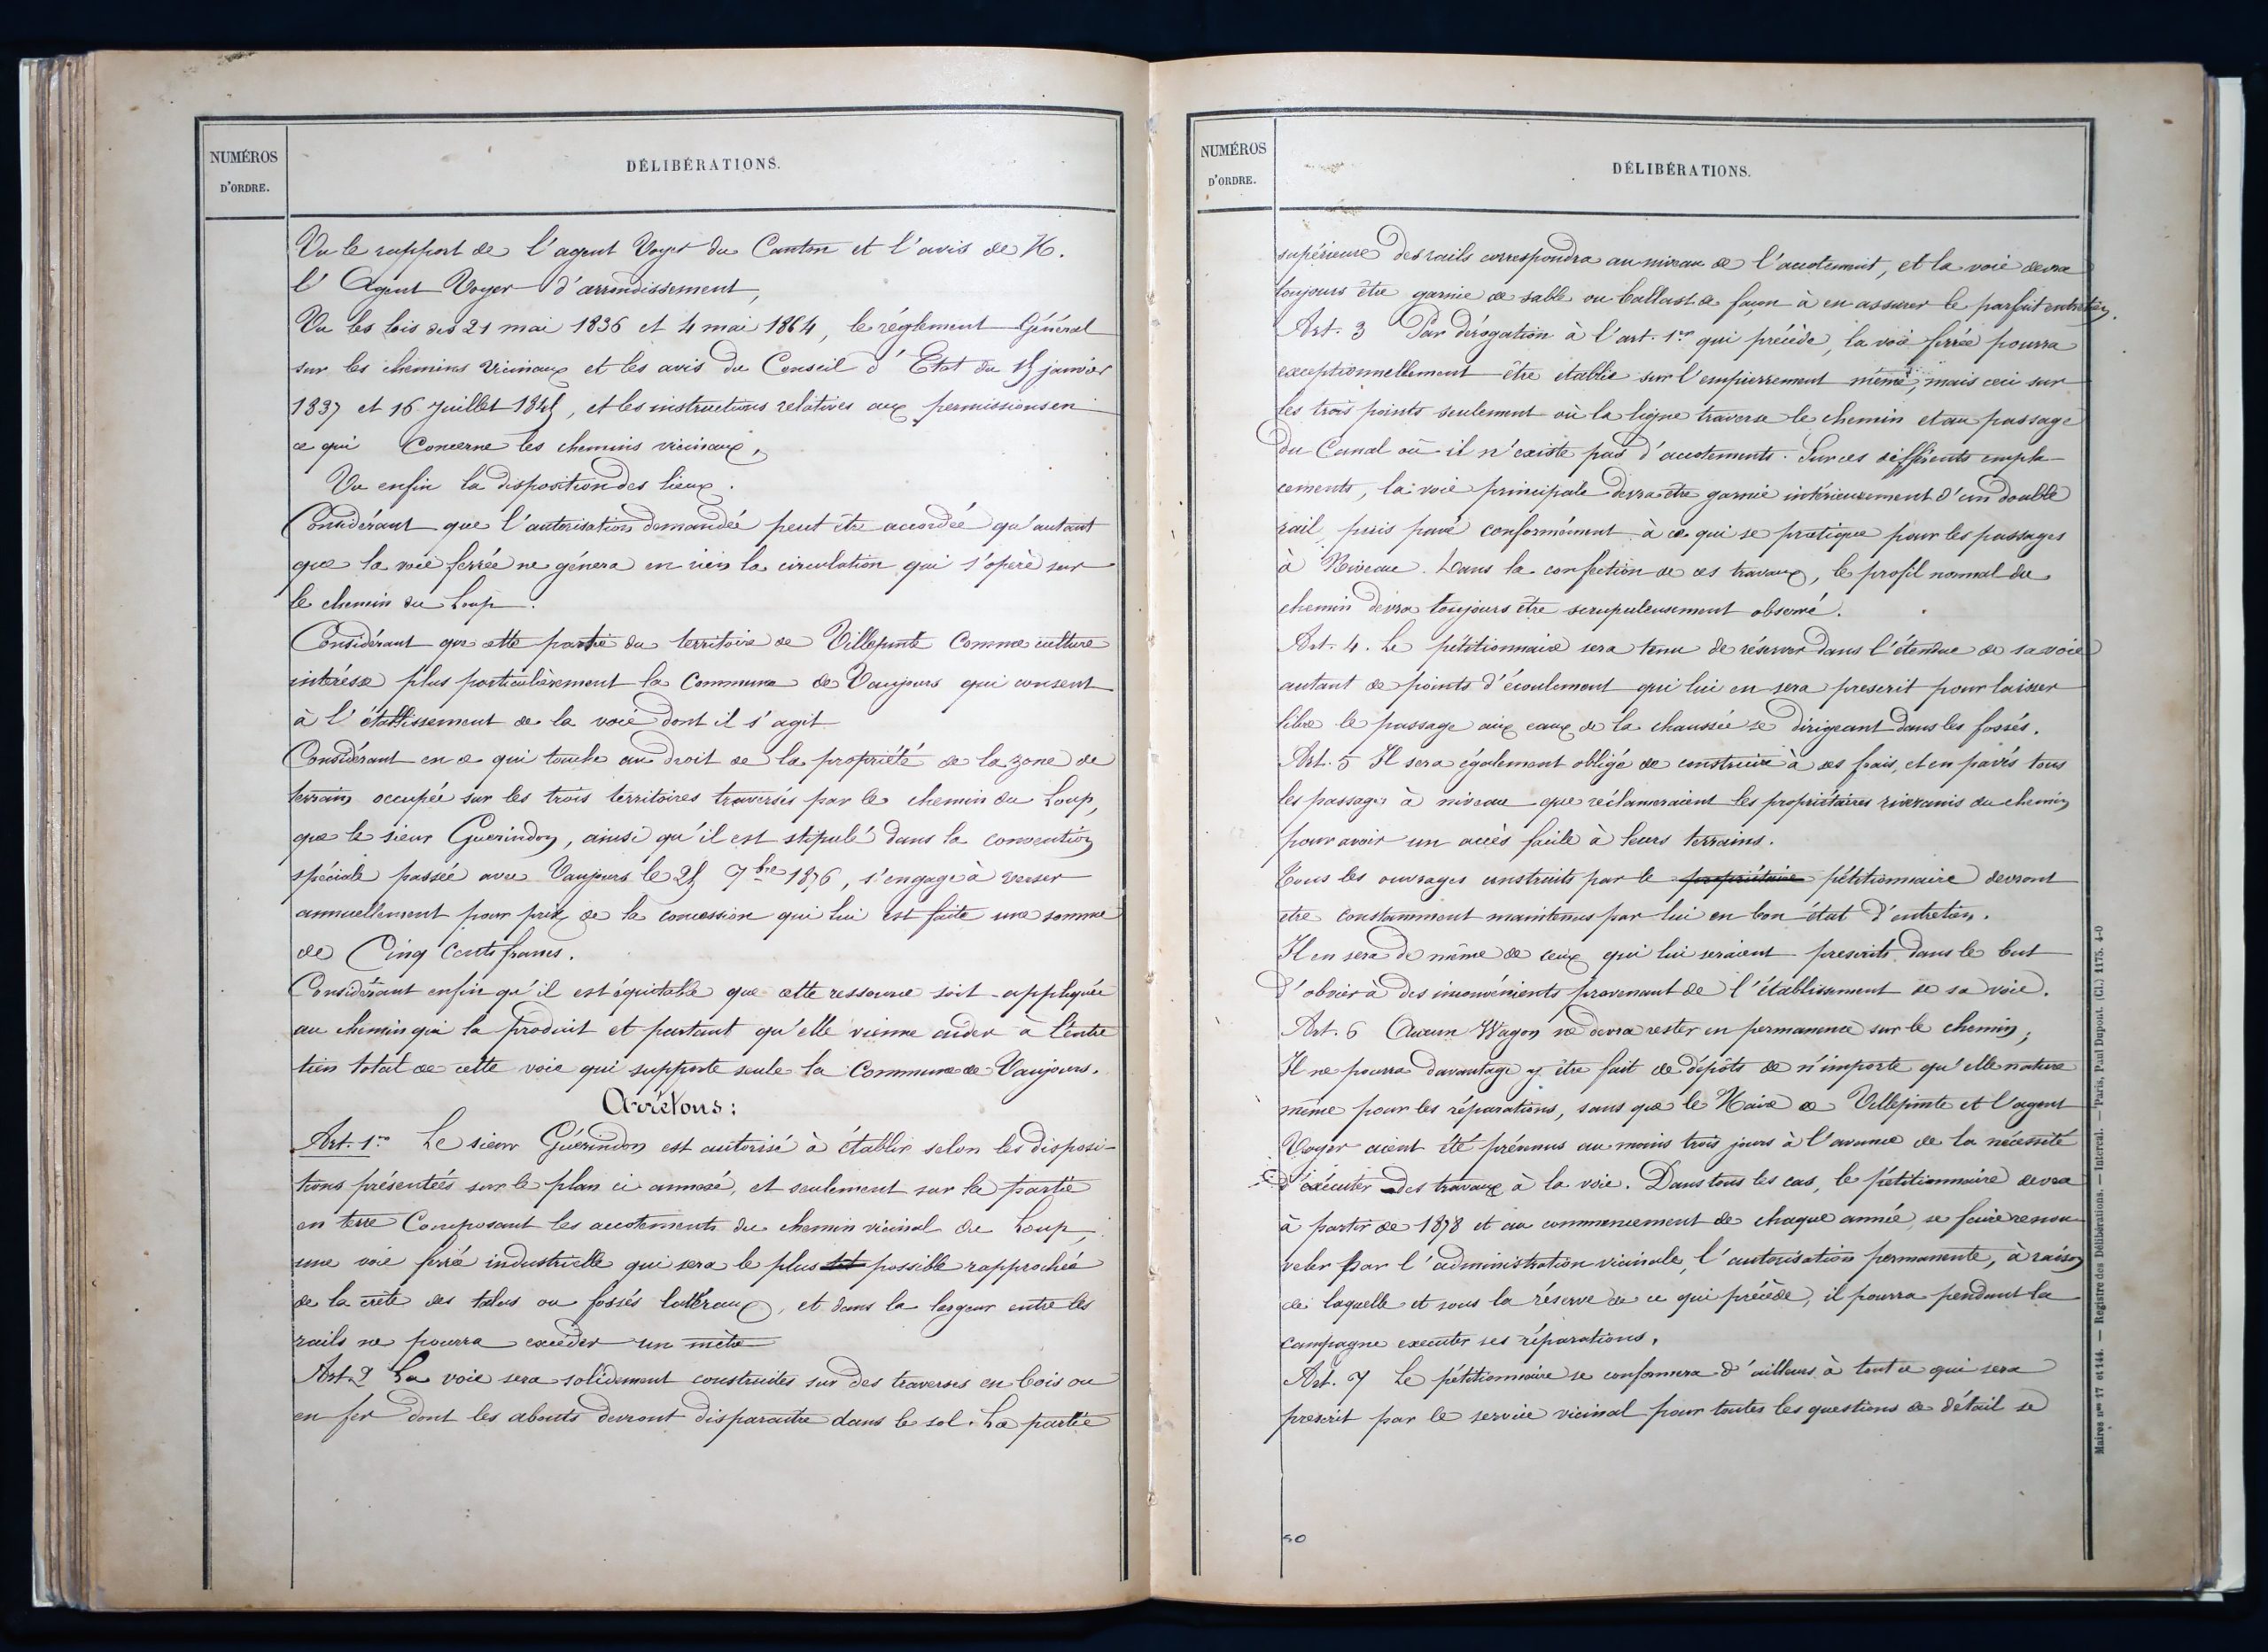 NUMÉROS
D'ORDRE.
DÉLIBÉRATIONS.
Vu le rapport de l'agent Voyer du Canton et l'avis de M.
l'Agent Voyer d'arrondissement,
Vu les lois des 21 mai 1836 et 4 mai 1864, le réglement Général
sur les chemins vicinaux et les avis du Conseil d'Etat du 15 janvier
1837 et 16 Juillet 1845, et les instructions relatives aux permissions en
ce qui Concerne les chemins vicinaux,
Vu enfin la disposition des lieux.
Considérant que l'autorisation demandée peut être accordée qu'autant
que la voie ferrée ne génera en rien la circulation qui s'opère sur
le chemin du Loup.
Considérant que cette partie du territoire de Villepinte Comme culture
intérésse plus particulièrement la Commune de Vaujours qui consent
à l'établissement de la voie dont il s'agit
Considérant en ce qui touche au droit de la propriété de la zone de
terrain occupée sur les trois territoires traversés par le chemin du Loup,
que le sieur Guerindon, ainsi qu'il est stipulé dans la convention
spéciale passée avec Vaujours le 25 7bre 1876, s'engage à verser
annuellement pour prix de la concession qui lui est faite une somme
de Cinq Cents francs.
Considérant enfin qu'il est équitable que cette ressource soit appliquée
au chemin qui la produit et partant qu'elle vienne aider à l'entre
tien total de cette voie qui supporte seule la Commune de Vaujours.
Arrêtons:
Art. 1er Le sieur Guérindon est autorisé à établir selon les disposi-
tions présentées sur le plan ci annexé, et seulement sur la partie
en terre Composant les accotements du chemin vicinal du Loup,
une voie ferré industrielle qui sera le plus tot possible rapprochée
de la crête des talus ou fossés latéraux, et dans la largeur entre les
rails ne pourra excéder un mètre
Art. 2 La voie sera solidement construites sur des traverses en bois ou
en fer dont les abouts devront disparaitre dans le sol. La partie
NUMÉROS
D'ORDRE.
DÉLIBÉRATIONS.
supérieure des rails correspondra au niveau de l'accotement, et la voie devra
toujours être garnie de sable ou ballast de façon à en assurer le parfait entretien.
Art. 3 Par dérogation à l'art. 1er qui précède, la voie ferrée pourra
exceptionnellement être établie sur l'empierrement même, mais ceci sur
les trois points seulement où la ligne traverse le chemin et au passage
du Canal où il n'existe pas d'accotements. Sur ces différents empla-
cements, la voie principale devra être garnie intérieurement d'un double
rail puis pavé conformément à ce qui se pratique pour les passages
à Niveau. Dans la confection de ces travaux, le profil normal du
chemin devra toujours être scrupuleusement observé.
Art. 4. Le pétitionnaire sera tenu de réserver dans l'étendue de sa voie
autant de points d'écoulement qui lui en sera prescrit pour laisser
libre le passage aux eaux de la chaussée se dirigeant dans les fossés.
Art. 5 Il sera également obligé de construire à ses frais, et en pavés tous
les passages à niveau que réclameraient les propriétaires riverains du chemin
pour avoir un accès facile à leurs terrains.
Tous les ouvrages construits par le propriétaire pétitionnaire devront
etre constamment maintenus par lui en bon état d'entretien.
Il en sera de même de ceux qui lui seraient prescrits dans le but
d'obvier à des inconvénients provenant de l'établissement de sa voie.
Art. 6 Aucun Wagon ne devra rester en permanence sur le chemin;
Il ne pourra davantage y être fait de dépôts de n'importe qu'elle nature
même pour les réparations, sans que le Maire de Villepinte et l'agent
Voyer aient été prévenus au moins trois jours à l'avance de la nécessité
d'exécuter des travaux à la voie. Dans tous les cas, le pétitionnaire devra
à partir de 1878 et au commencement de chaque année se faire renou-
veler par l'administration vicinale, l'autorisation permanente, à raison
de laquelle et sous la réserve de ce qui précède, il pourra pendant la
campagne executer ses réparations.
Art. 7 Le pétitionnaire se conformera d'ailleurs à tout ce qui sera
prescrit par le service vicinal pour toutes les questions de détail se
50
Maires nos 17 et 144. — Registre des Délibérations. — Intercal. — Paris, Paul Dupont. (Cl.) 1175. 4-0